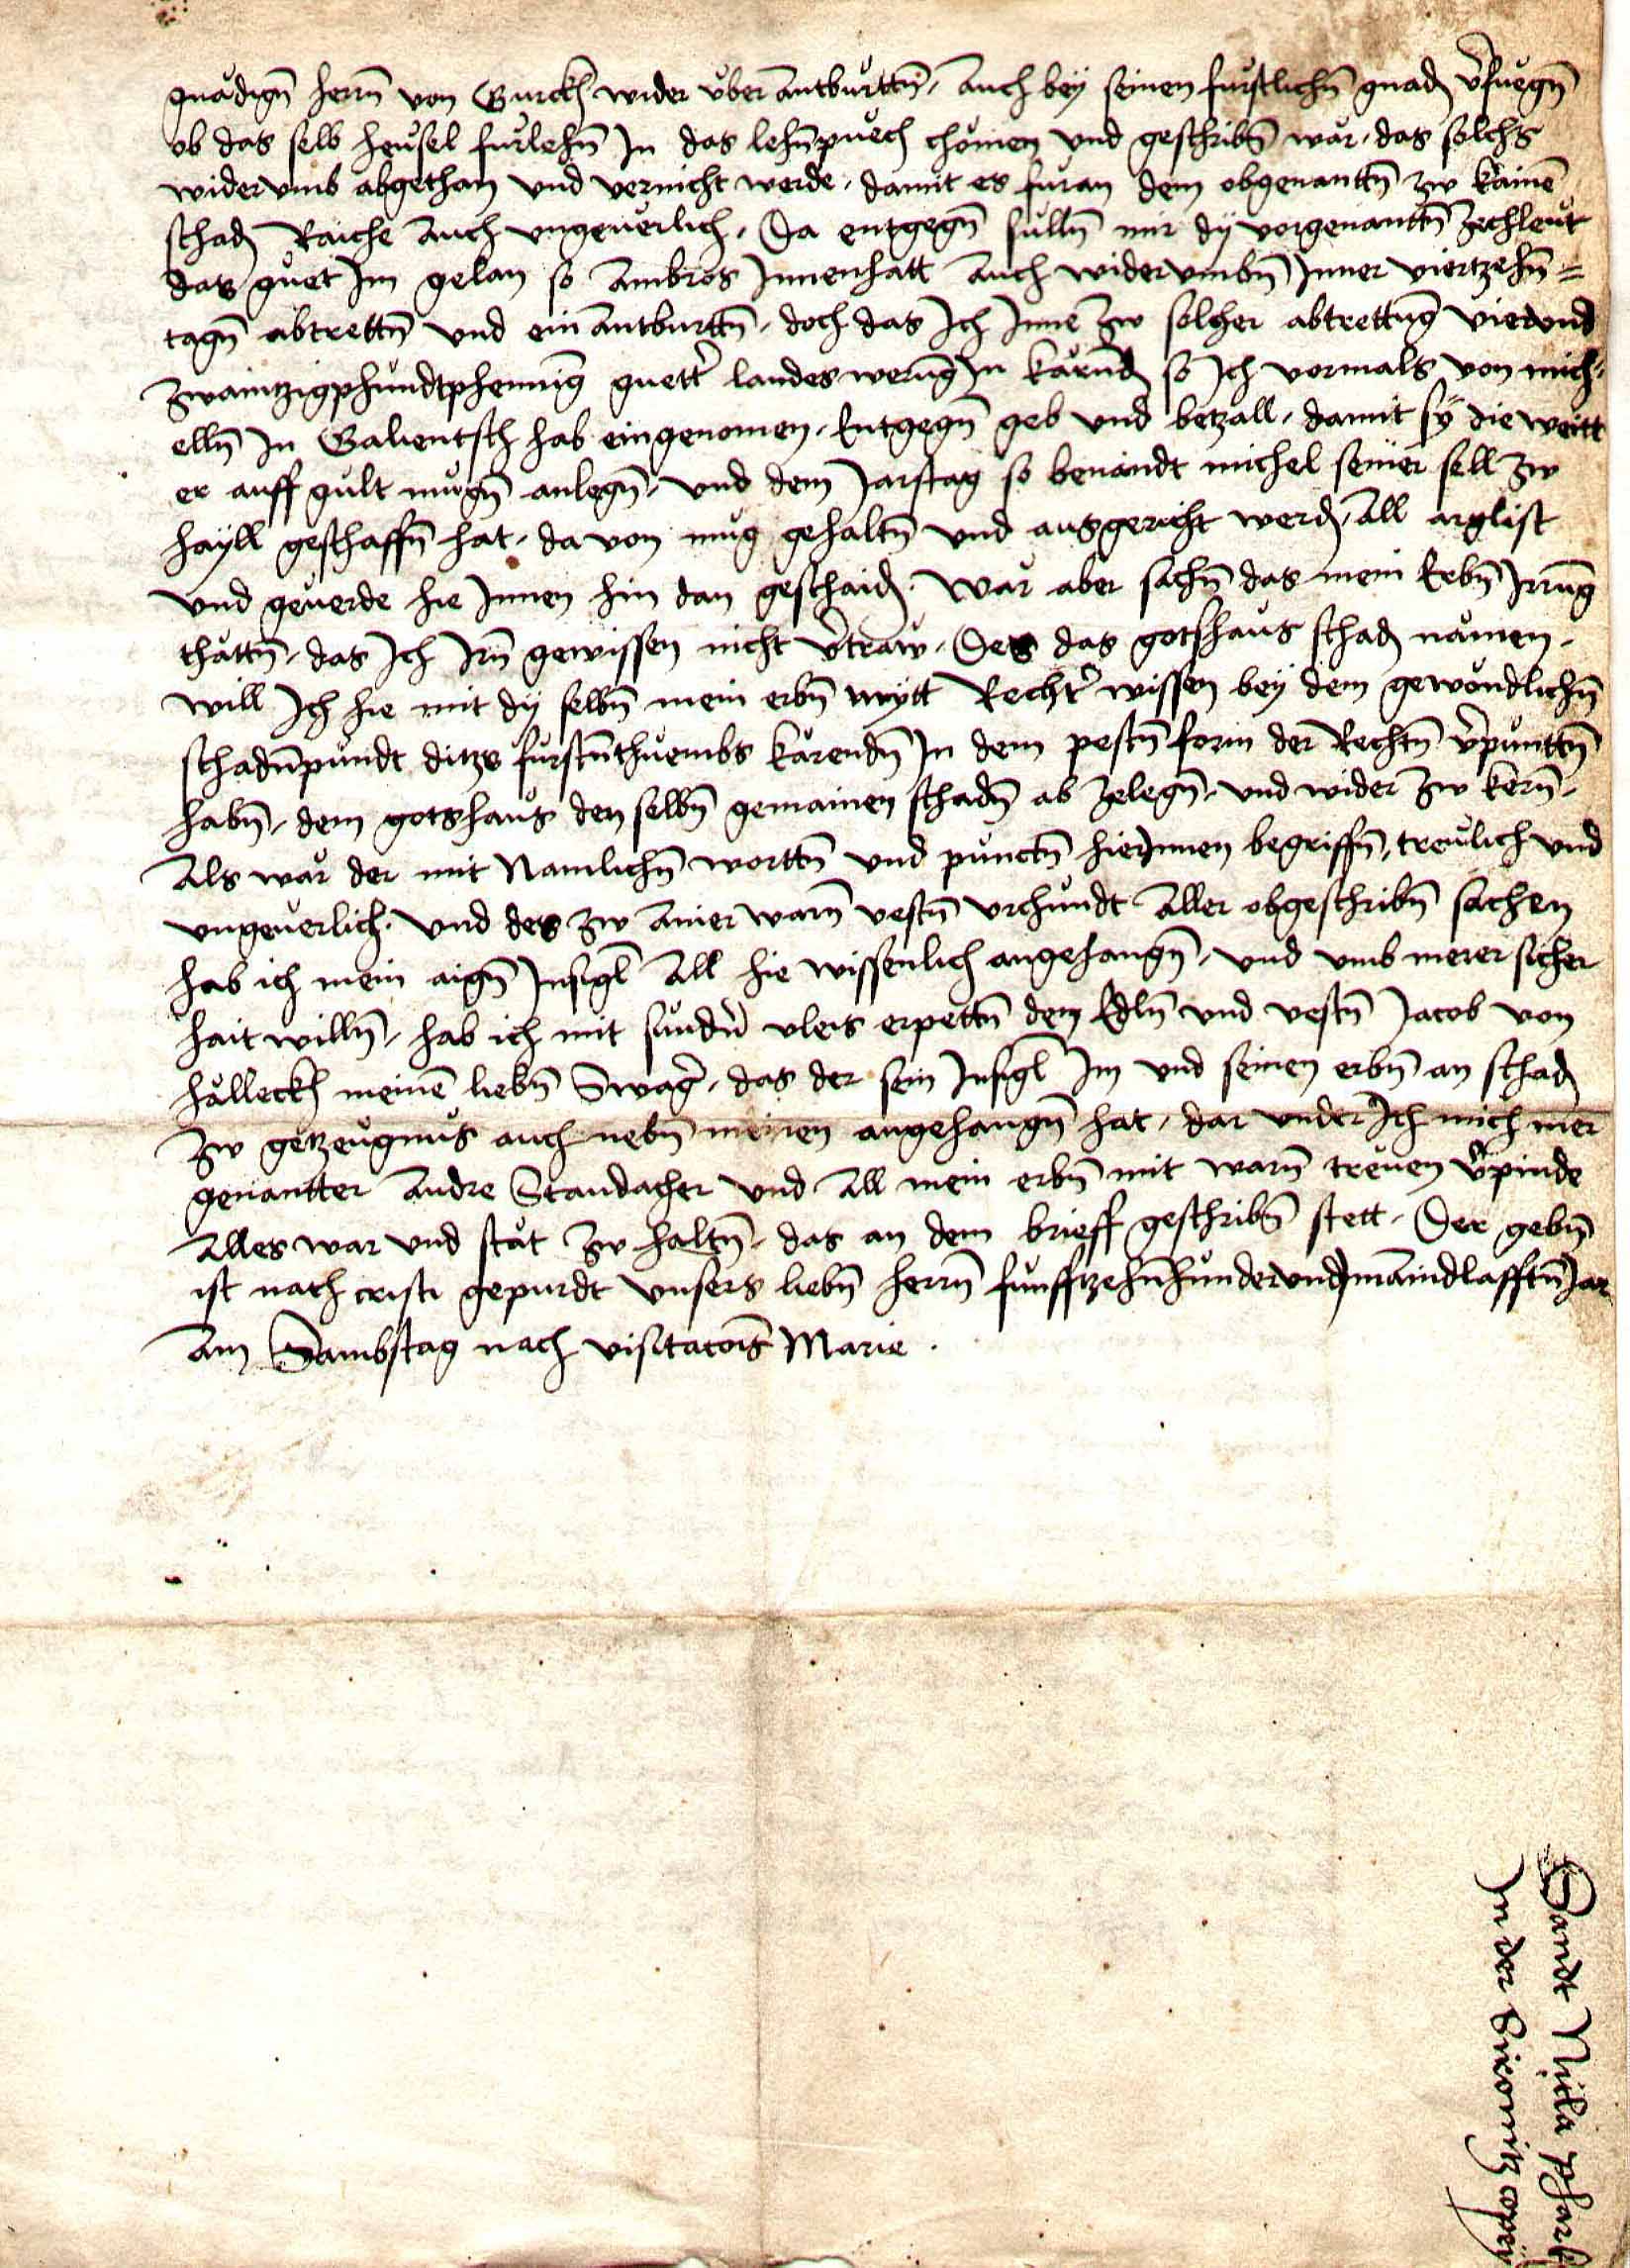 gnädign̄ herrn̄ von Gurckh wider über antburttn̄, Auch bey seinen fürstlichn̄ gnadn̄ v̄fuegn̄
ob das selb heüsel fürlehn̄ In das lehn̄püech chömen vnd geschribn̄ wär, das solchs
widervmb abgethan vnd vernicht werde, damit es füran dem obgenanttn̄ zw kainē
schadn̄ Raiche Auch vngeuerlich, Da entgegn̄ sülln̄ mir dÿ vorgenanttn̄ zechleüt
das güet Im gelan so Ambros Innenhatt Auch widervmbn̄ Inner viertzehn̄ =
tagn̄ abtrettn̄ vnd ein Antburttn̄, doch das Ich Inne zw solher abtrettūg viervnd
zwaintzigphundtphenning guett̄ landes werūg In kärndn̄ so Ich vormals von mich,
elln̄ In Galientsch hab eingenomen, Entgegn̄ geb vnd betzall, damit sÿ die weitt
er auff gült mügn̄ anlegn̄, vnd dem Jarstag so benandt michel seiner sell zw
hayll geschaffn̄ hat, da von müg gehaltn̄ vnd ausgericht werdn̄, All arglist
vnd geuerde hie Innen hin dan geschaidn̄. wär aber sachn̄ das mein Erbn̄ Irrung
thättn̄, das Ich Irn̄ gewissen nicht v̄traw, Des das gotshaus schadn̄ nämen,
will Ich hie mit dÿ selbn̄ mein erbn̄ mytt Recht̄ wissen bey dem gewöndlichn̄
schadn̄pundt ditzs fürstn̄thuembs kärendn̄ In dem pestn̄ form der Rechtn̄ v̄punttn̄
habn̄, dem gotshaüs den selbn̄ gemainen schadn̄ ab zelegn̄, vnd wider zw kern̄,
Als wär der mit Namlichn̄ worttn̄ vnd punctn̄ hierInnen begriffn̄, treulich vnd
vngeuerlich. vnd des zw Ainer warn̄ vestn̄ vrchundt Aller obgeschribn̄ sachen
hab ich mein aign̄ Insigl All hie wissenlich angehangn̄, vnd vmb merer sicher
hait willn̄, hab ich mit sundn̄ vleis erpettn̄ den Edln̄ vnd vestn̄ Jacob von
hälleckh meinē liebn̄ Swaḡ, das der sein Insigl Im vnd seinen erbn̄ an schadn̄
zw getzeugnus auch nebn̄ meinen angehangn̄ hat, dar vnder Ich mich mer
genantter Andre Staudacher vnd All mein erbn̄ mit warn̄ treuen v̄pinde
Alles war vnd stät zw haltn̄, das an dem brieff geschribn̄ stett. Der gebn̄
ist nach cristi gepurdt vnsers liebn̄ herrn̄ funfftzehn̄hundervnd Imaindlafftn̄ Jar
Am Sambstag nach visitatōis Marie.
Sandt Nicla pharr
In der